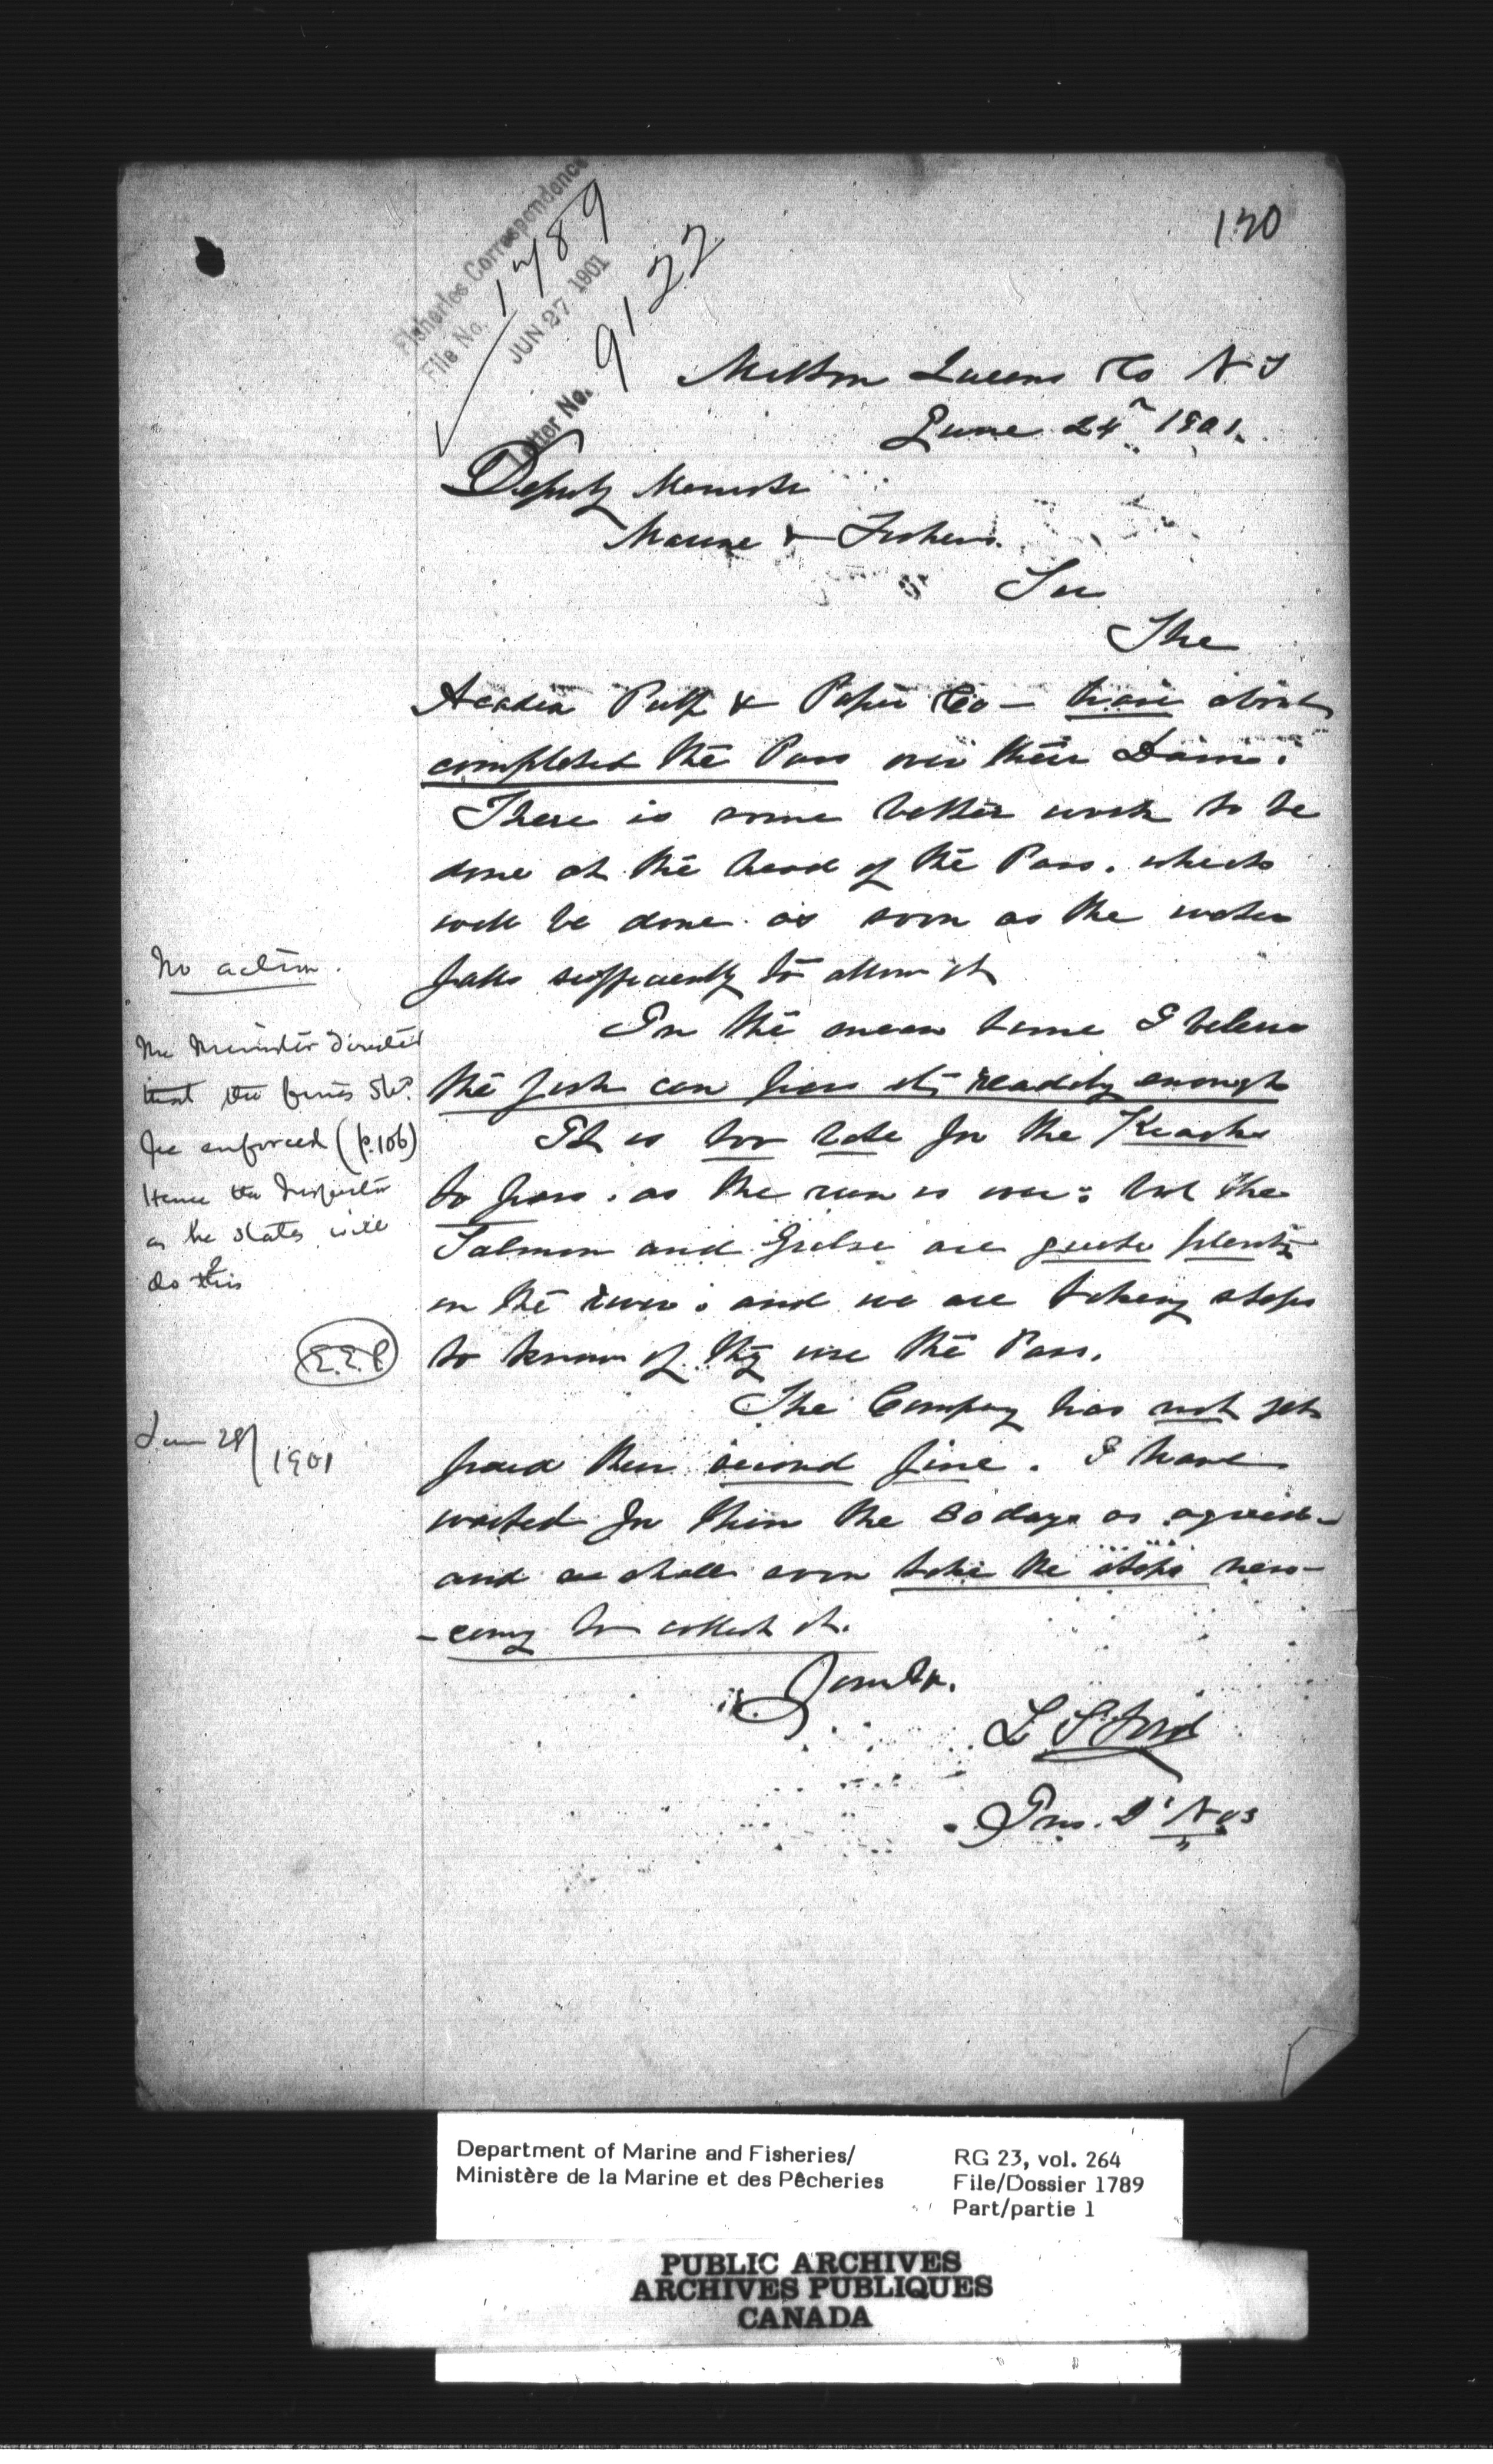 130
Fisheries Correspondence
File No. 1789
JUN 27 1901
Letter No. 9122
Milton Queens Co N S
June 24" 1901.
Deputy Minister
Marine & Fisheries.
Sir
The
Acadia Pulp & Paper Co — have about
completed the Pass over their Dam.
There is some better work to be
done at the head of the Pass. which
will be done as soon as the water
falls sufficiently to allow it
In the mean time I believe
the fish can pass it readily enough
It is too late for the Kiacks
to pass. as the run is over: but the
Salmon and Grilse are quite plenty
in the river. and we are taking steps
to know if they use the Pass.
The Company has not yet
paid their second fine. I have
waited for them the 30 days as agreed—
and we shall soon take the steps ness-
-cary to collect it.
Yours tr.
L S Ford
Ins. D' No 3
No action.
The Minister directed
that the fines shd.
be enforced (p.106)
Hence the Inspector
as he states will
do this
E.E.P
June 28/1901
Department of Marine and Fisheries/
Ministère de la Marine et des Pêcheries
RG 23, vol. 264
File/Dossier 1789
Part/partie 1
PUBLIC ARCHIVES
ARCHIVES PUBLIQUES
CANADA